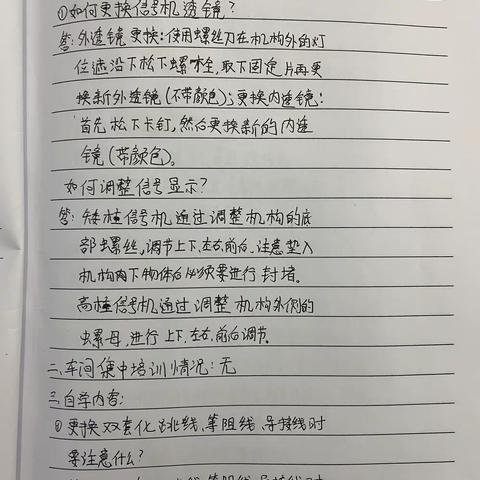 ①如何更换信号机透镜?
答:外透镜更换:使用螺丝刀在机构外的灯
位滤沿下松下螺栓,取下固定片再更
换新外透镜(不带颜色);更换内透镜:
首先松下卡钉,然后更换新的内透
镜(带颜色)。
如何调整信号显示?
答:矮柱信号机通过调整机构的底
部螺丝,调节上下、左右、前后、注意垫入
机构内下物体后必须要进行封堵。
高柱信号机通过调整机构外侧的
螺母,进行上下、左右、前后调节。
二、车间集中培训情况:无
三、自学内容:
①更换双套化跳线、等阻线、导接线时
要注意什么?
等阻线、导接线时